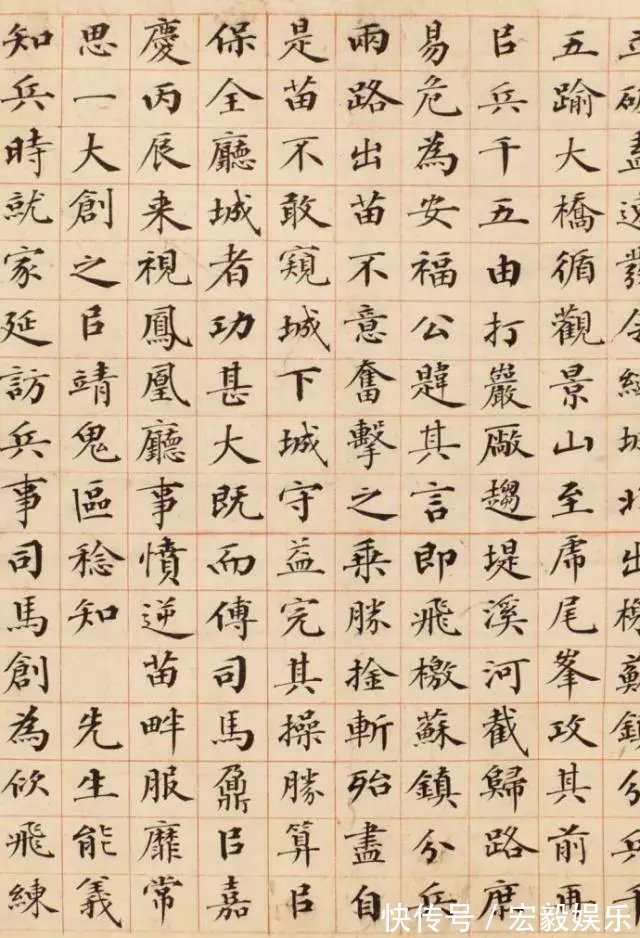 盡發令出分兵
五踰大橋循觀景山至虎尾峯攻其前再
㠯兵千五由打巖厰趨堤溪河截歸路庶
易危為安福公韙其言即飛檄蘇鎮分兵
兩路出苗不意奮擊之乘勝捦斬殆盡自
是苗不敢窺城下城守益完其操勝算㠯
保全廳城者功甚大既而傅司馬鼐㠯嘉
慶丙辰来視鳳凰廳事憤逆苗畔服靡常
思一大創之㠯靖鬼區稔知 先生能義
知兵時就家延訪兵事司馬創為佽飛練
快传号 / 宏毅娱乐